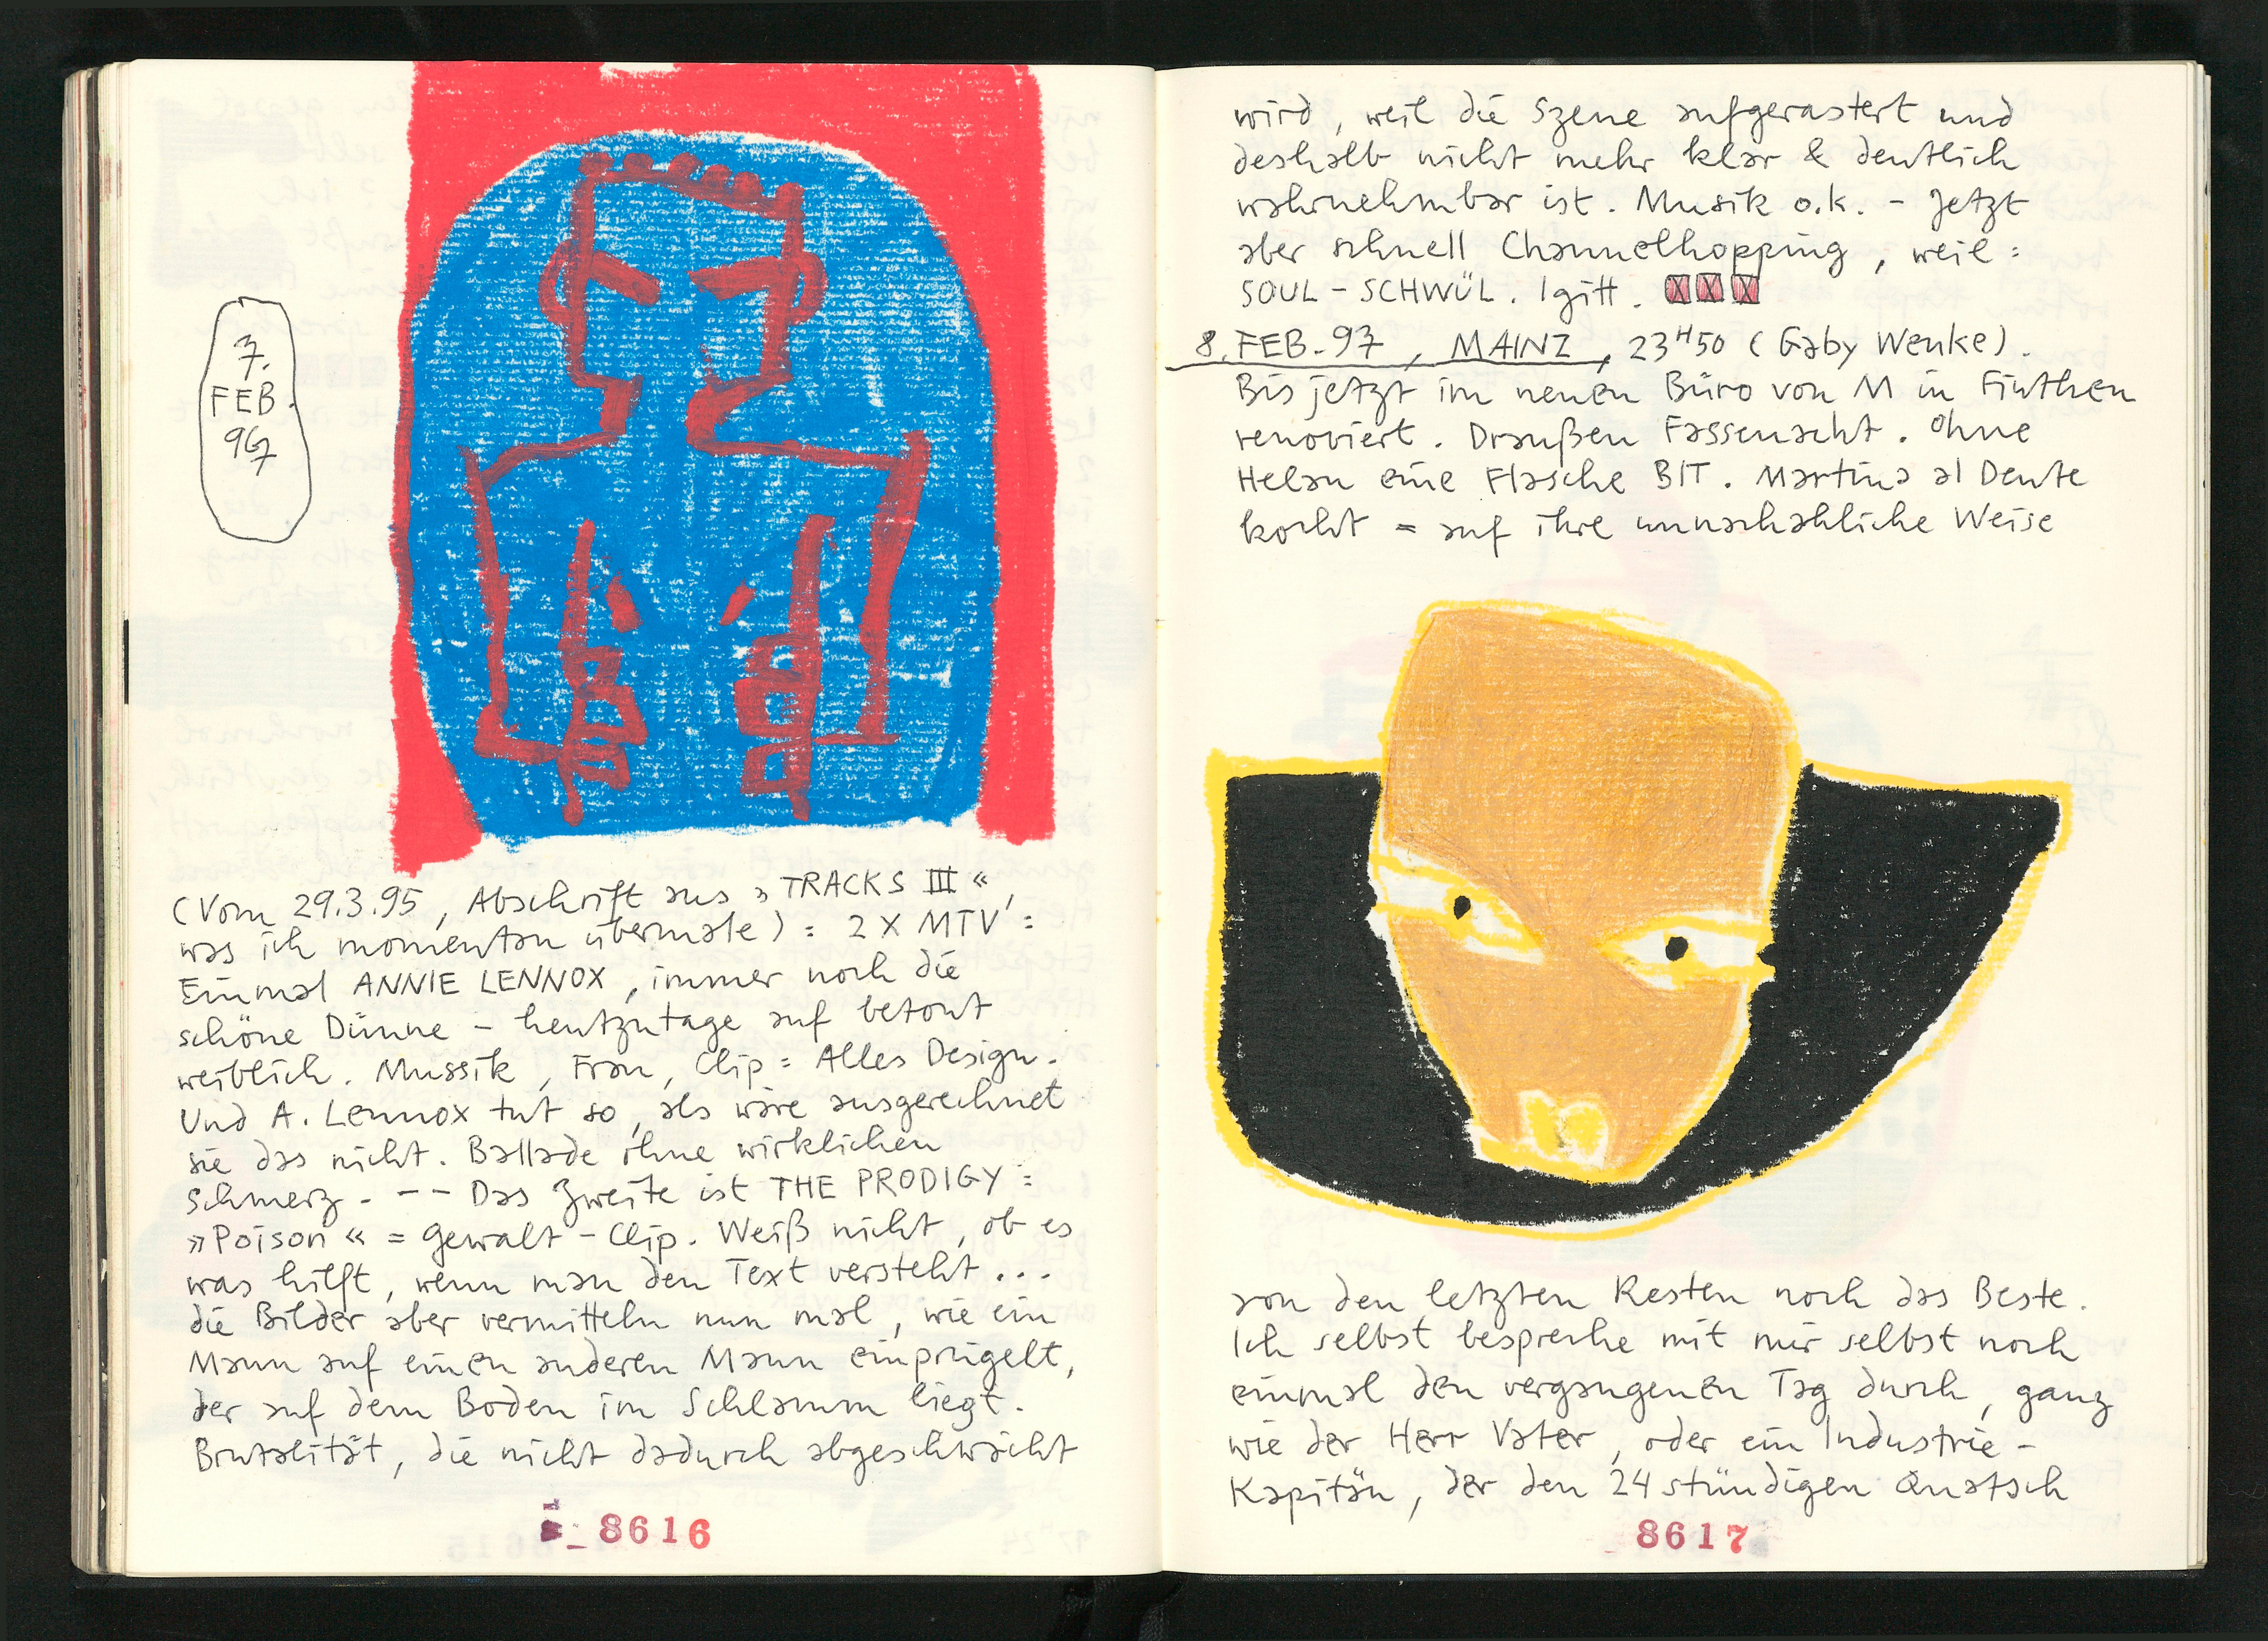 7.
FEB.
97
(Vom 29.3.95, Abschrift aus »TRACKS III«,
was ich momentan übermale) : 2 X MTV :
Einmal ANNIE LENNOX, immer noch die
schöne Dünne – heutzutage auf betont
weiblich. Mussik, Frau, Clip = Alles Design.
Und A. Lennox tut so, als wäre ausgerechnet
sie das nicht. Ballade ohne wirklichen
Schmerz. – – Das Zweite ist THE PRODIGY :
»Poison« = Gewalt-Clip. Weiß nicht, ob es
was hilft, wenn man den Text versteht ...
die Bilder aber vermitteln nun mal, wie ein
Mann auf einen anderen Mann einprügelt,
der auf dem Boden im Schlamm liegt.
Brutalität, die nicht dadurch abgeschwächt
8616
wird, weil die Szene aufgerastert und
deshalb nicht mehr klar & deutlich
wahrnehmbar ist. Musik o.k. – Jetzt
aber schnell Channelhopping, weil :
SOUL – SCHWÜL. Igitt. XXX
8. FEB. 97, MAINZ, 23H50 (Gaby Wenke).
Bis jetzt im neuen Büro von M in Finthen
renoviert. Draußen Fassenacht. Ohne
Helau eine Flasche BIT. Martina al Dente
kocht = auf ihre unnachahliche Weise
von den letzten Resten noch das Beste.
Ich selbst bespreche mit mir selbst noch
einmal den vergangenen Tag durch, ganz
wie der Herr Vater, oder ein Industrie-
Kapitän, der den 24 stündigen Quatsch
8617